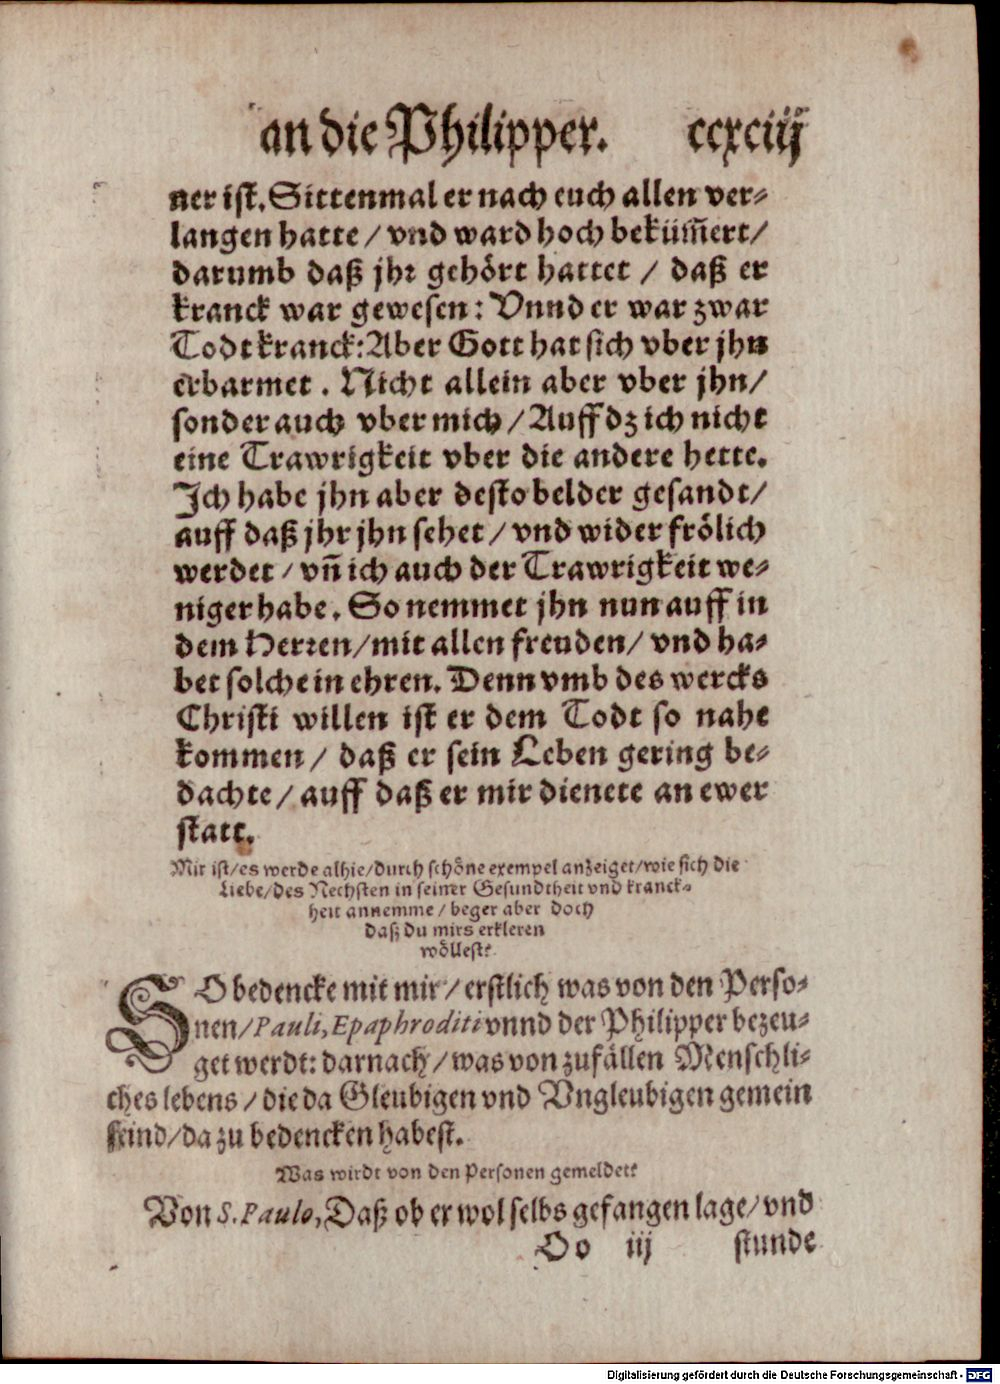 an die Philipper. ccxciij
ner ist. Sittenmal er nach euch allen ver-
langen hatte / vnd ward hoch bekům̃ert /
darumb daß jhr gehört hattet / daß er
kranck war gewesen: Vnnd er war zwar
Todt kranck: Aber Gott hat sich vber jhn
erbarmet. Nicht allein aber vber jhn /
sonder auch vber mich / Auff dz ich nicht
eine Trawrigkeit vber die andere hette.
Ich habe jhn aber desto belder gesandt /
auff daß jhr jhn sehet / vnd wider frölich
werdet / vñ ich auch der Trawrigkeit we-
niger habe. So nemmet jhn nun auff in
dem Herren / mit allen freuden / vnd ha-
bet solche in ehren. Denn vmb des wercks
Christi willen ist er dem Todt so nahe
kommen / daß er sein Leben gering be-
dachte / auff daß er mir dienete an ewer
statt.
Mir ist / es werde alhie / durch schöne exempel anzeiget / wie sich die
Liebe / des Nechsten in seiner Gesundtheit vnd kranck-
heit annemme / beger aber doch
daß du mirs erkleren
wöllest?
SO bedencke mit mir / erstlich was von den Perso-
nen / Pauli, Epaphroditi vnnd der Philipper bezeu-
get werdt: darnach / was von zufällen Menschli-
ches lebens / die da Gleubigen vnd Vngleubigen gemein
seind / da zu bedencken habest.
Was wirdt von den Personen gemeldet?
Von S. Paulo, Daß ob er wol selbs gefangen lage / vnd
Oo iij stunde
Digitalisierung gefördert durch die Deutsche Forschungsgemeinschaft - DFG